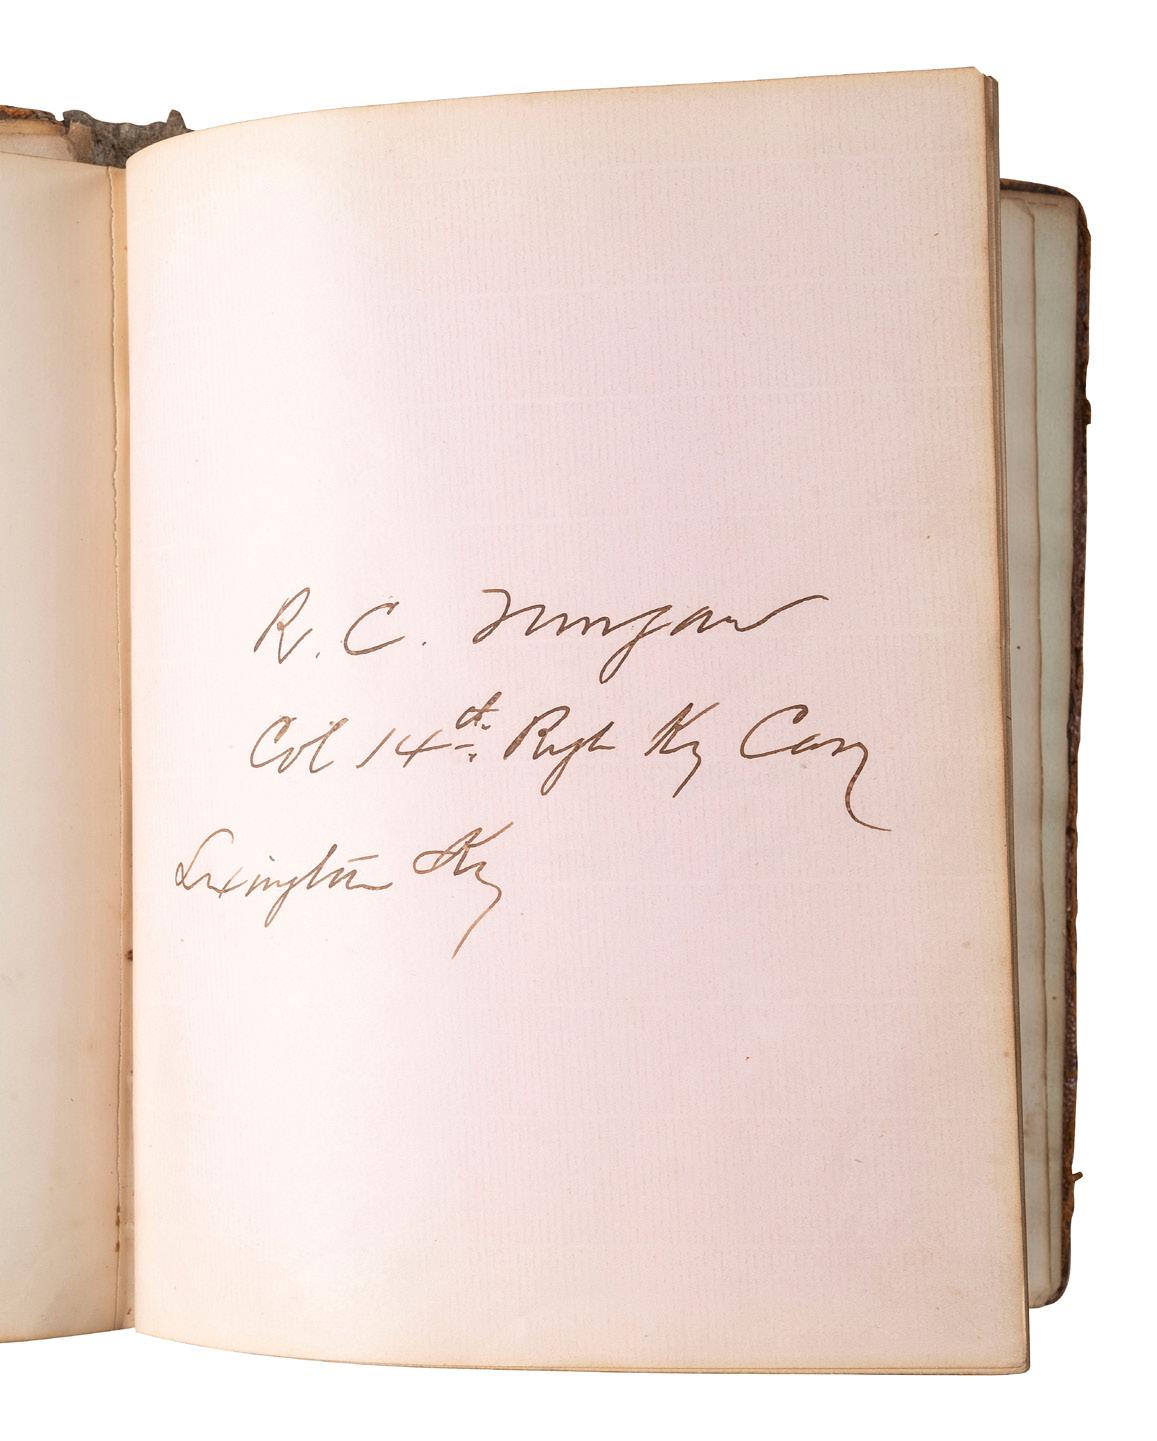 R. C. Morgan
Col 14th Regt Ky Cav
Lexington Ky